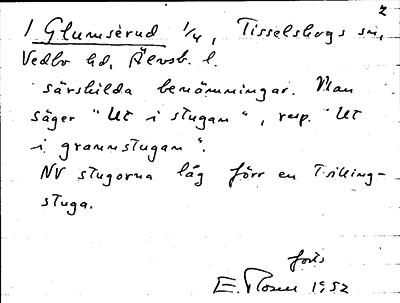 2
I Glumserud 1/4, Tisselskogs sn,
Vedbo hd, Älvsb. l.
särskilda benämningar. Man
säger "Ut i stugan", resp. "Ut
i grannstugan".
NV stugorna låg förr en Trilling-
stuga.
forts
E. Rosen 1952